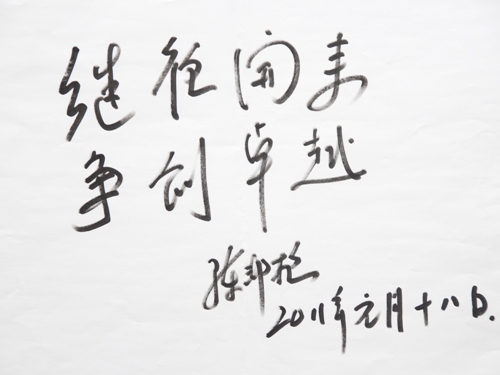 继往開来
争创卓越
陈邦柱
2011年元月十八日.